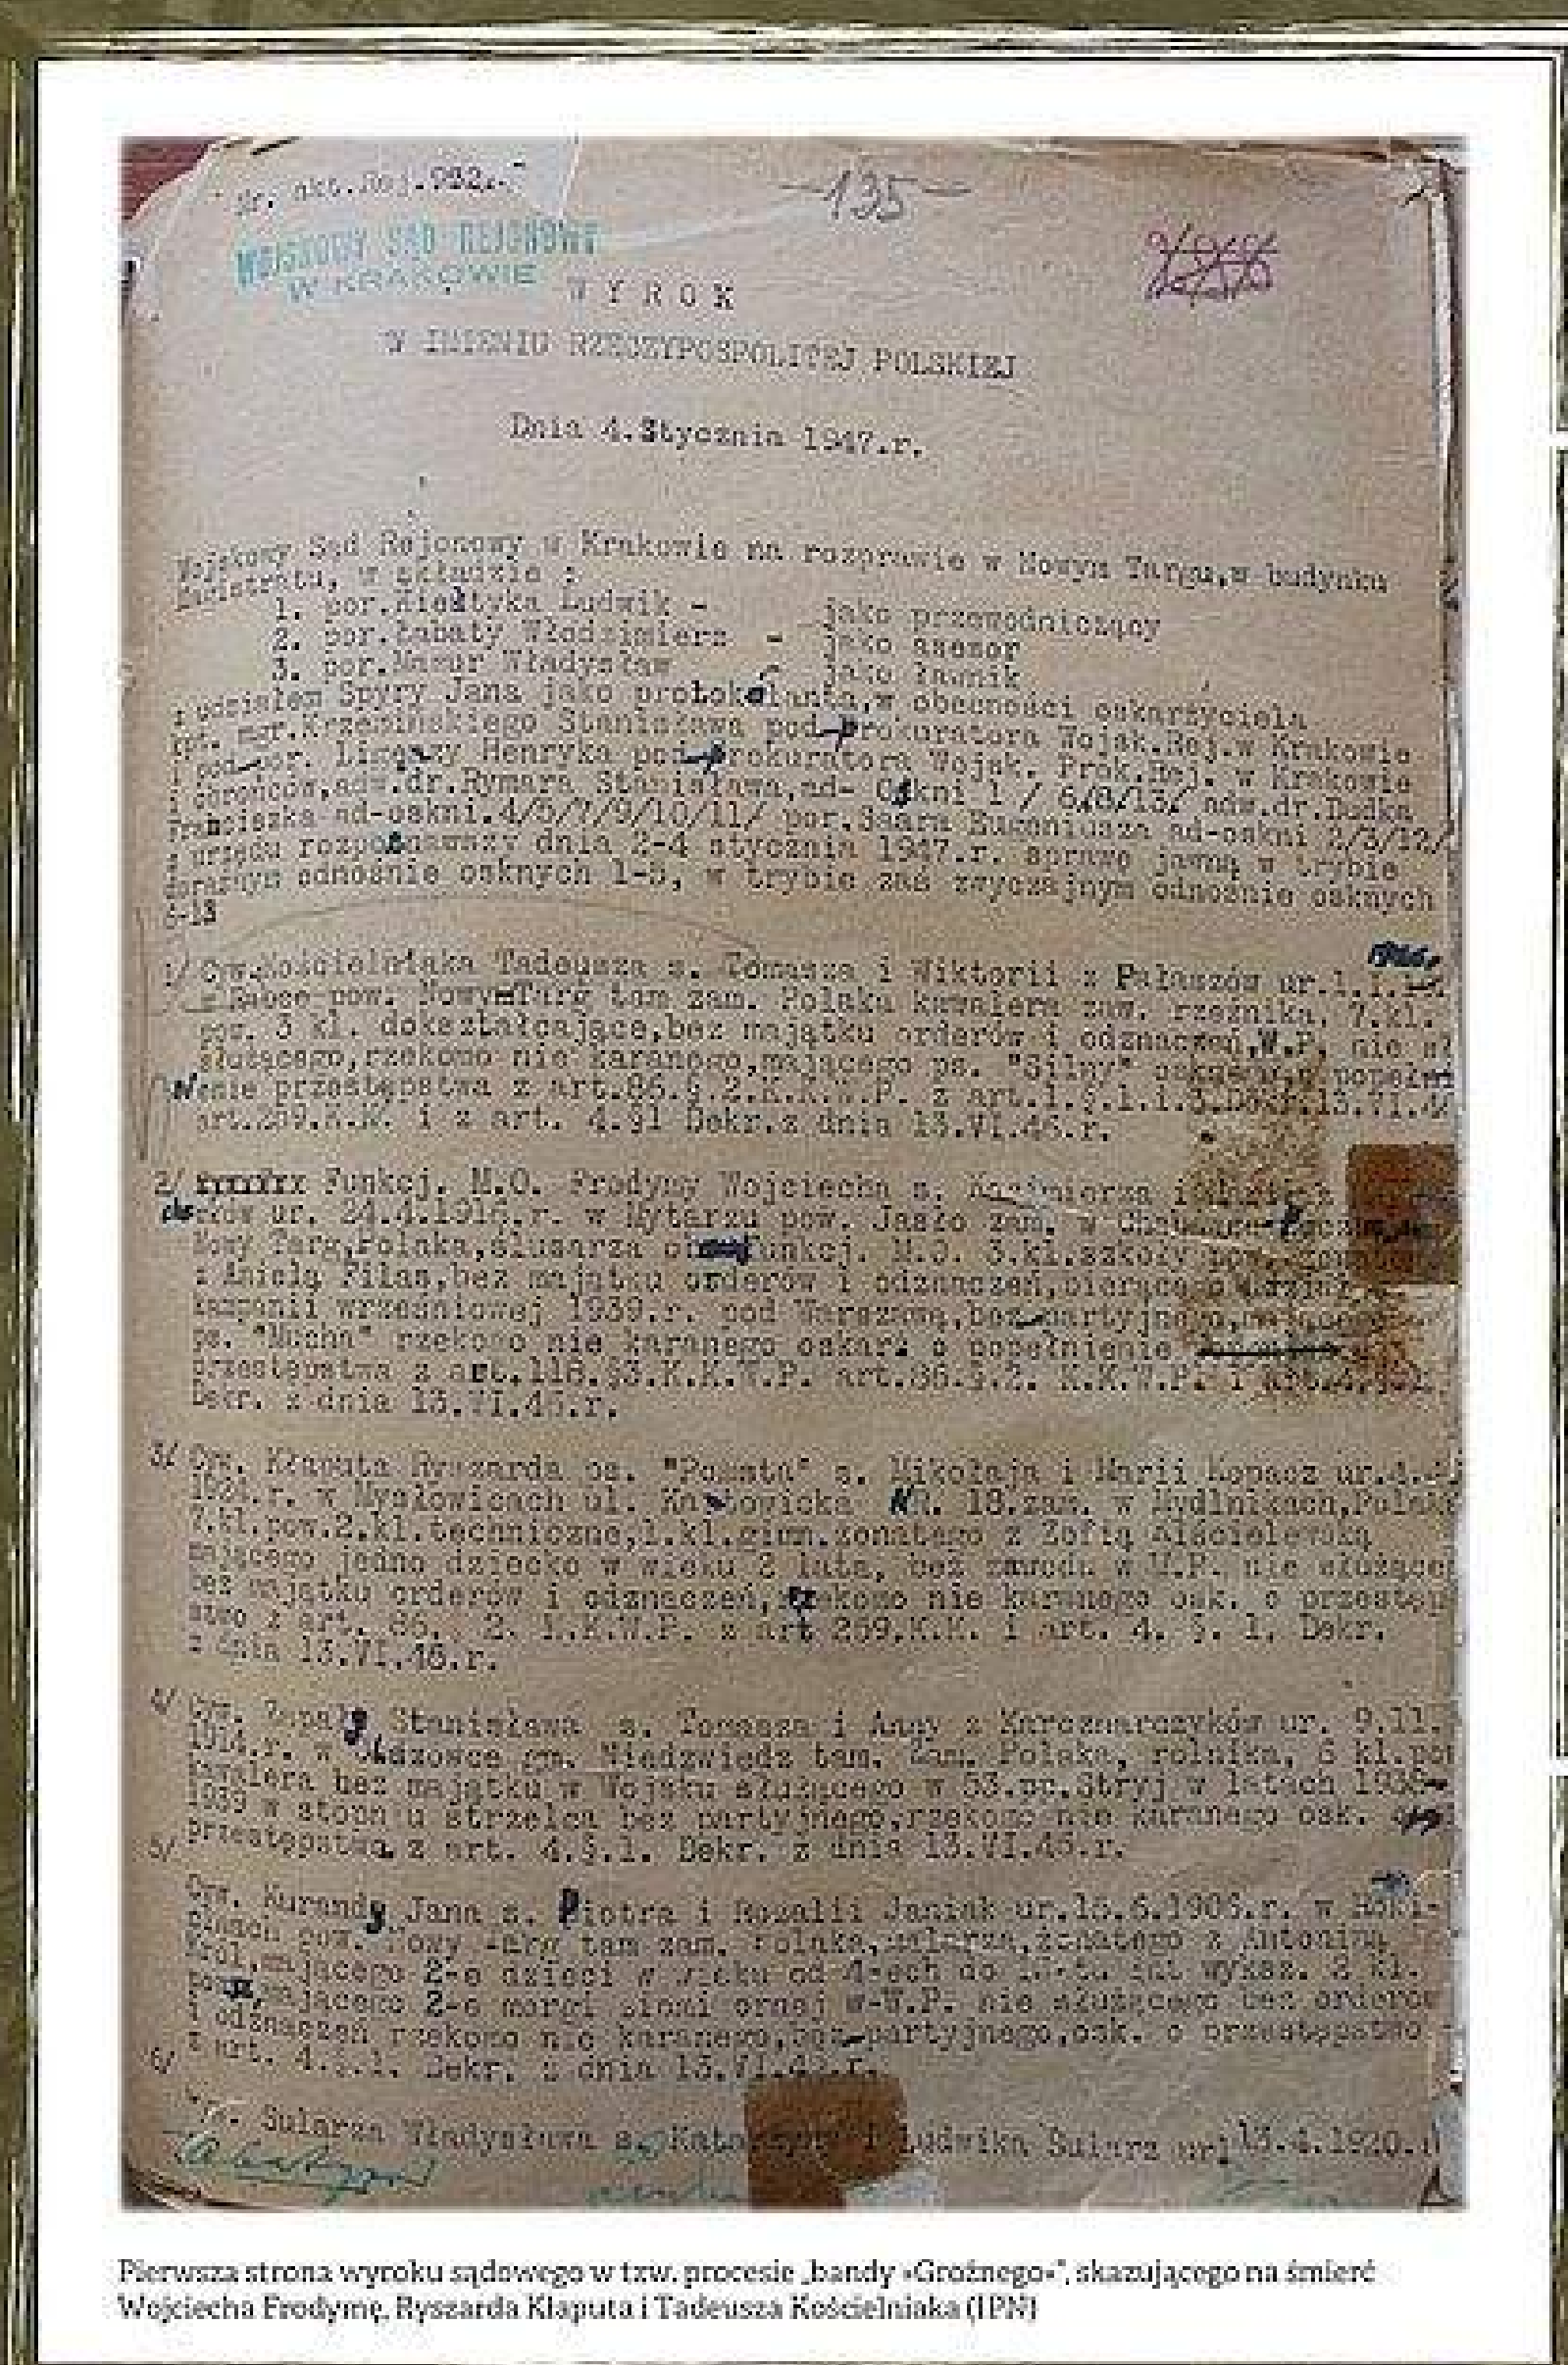 Nr. akt.Rej.992.
-135-
WOJSKOWY SĄD REJONOWY
W KRAKOWIE
W Y R O K
W IMIENIU RZECZYPOSPOLITEJ POLSKIEJ
Dnia 4.Stycznia 1947.r.
Wojskowy Sąd Rejonowy w Krakowie na rozprawie w Nowym Targu,w budynku
Magistratu, w składzie :
1. por. Ludwik - jako przewodniczący
2. por.Łabaty Włodzimierz - jako asesor
3. por.Mazur Władysław - jako ławnik
z udziałem Spyry Jana jako protokolanta,w obecności oskarżyciela
mgr.Krzemińskiego Stanisława pod-prokuratora Wojsk.Rej.w Krakowie
i pod-por. Ligęzy Henryka pod-prokuratora Wojsk. Prok.Rej. w Krakowie
i obrońców,adw.dr.Rymara Stanisława,ad- Oskni 1 / 6/8/13/ adw.dr.Dudka
Franciszka ad-oskni.4/5/7/9/10/11/ por.Saara Eugeniusza ad-oskni 2/3/12/
z urzędu rozpoznawszy dnia 2-4 stycznia 1947.r. sprawę jawną w trybie
doraźnym odnośnie osknych 1-5, w trybie zaś zwyczajnym odnośnie osknych
6-13
1/ Cyw.Kościelniaka Tadeusza s. Tomasza i Wiktorii z Pałaszów ur.1.1.
w Rabce pow. Nowy-Targ tam zam. Polaka kawalera zaw. rzeźnika, 7.kl.
pow. 3 kl. dokształcające,bez majątku orderów i odznaczeń,W.P. nie
służącego,rzekomo nie karanego,mającego ps. "Silny"
przestępstwa z art.86.§.2.K.K.W.P. z art.1.§.1.
art.259.K.K. i z art. 4.§1 Dekr.z dnia 13.VI.46.r.
2/ xxxxxxx Funkcj. M.O. Frodymy Wojciecha s. Kazimierza i
ur. 24.4.1916.r. w Mytarzu pow. Jasło zam. w
Nowy Targ,Polaka,ślusarza funkcj. M.O. 3.kl.szkoły pow.
z Anielą Filas,bez majątku orderów i odznaczeń,
kampanii wrześniowej 1939.r. pod Warszawą,bez-partyjnego,mającego
ps. "Mucha" rzekomo nie karanego oskar. o popełnienie
przestępstwa z art.118.§3.K.K.W.P. art.86.§.2. K.K.W.P. i
Dekr. z dnia 13.VI.46.r.
3/ Cyw. Kłaputa Ryszarda ps. "Pomsta" s. Mikołaja i Marii Kopacz ur.4.
1924.r. w Mysłowicach ul. Katowicka NR. 18.zam. w Mydlnikach,Polaka
7.kl.pow.2.kl.techniczne,1.kl.gimn.żonatego z Zofią
mającego jedno dziecko w wieku 2 lata, bez zawodu w W.P. nie służącego
bez majątku orderów i odznaczeń,rzekomo nie karanego osk. o przestęp
stwo z art. 86. 2. K.K.W.P. z art 259.K.K. i art. 4. §. 1. Dekr.
z dnia 13.VI.46.r.
4/ Cyw. Stanisława s. Tomasza i Anny z Karczmarczyków ur. 9.11.
1914.r. w gm. Niedźwiedź tam. zam. Polaka, rolnika, 6 kl.pow
kawalera bez majątku w Wojsku służącego w 53.pp.Stryj w latach
1939 w stopniu strzelca bez partyjnego,rzekomo nie karanego osk.
przestępstwa z art. 4.§.1. Dekr. z dnia 13.VI.46.r.
5/
Cyw. Kurandy Jana s. Piotra i Rozalii Janiak ur.15.6.1906.r. w Roki-
cinach pow. Nowy Targ tam zam. Polaka, żonatego z Antoniną
Król,mającego 2-e dzieci w wieku od 4-ech do lat wyksz. 2 kl.
pow.,mającego 2-e morgi ziemi ornej w-W.P. nie służącego bez orderów
i odznaczeń rzekomo nie karanego,bez-partyjnego,osk. o przestępstwo
z art. 4.§.1. Dekr. z dnia 13.VI.46.r.
6/
Cyw. Sularza Władysława s. Katarzyny i Ludwika Sularz ur.13.4.1920.
Pierwsza strona wyroku sądowego w tzw. procesie „bandy »Groźnego«”, skazującego na śmierć
Wojciecha Frodymę, Ryszarda Kłaputa i Tadeusza Kościelniaka (IPN)